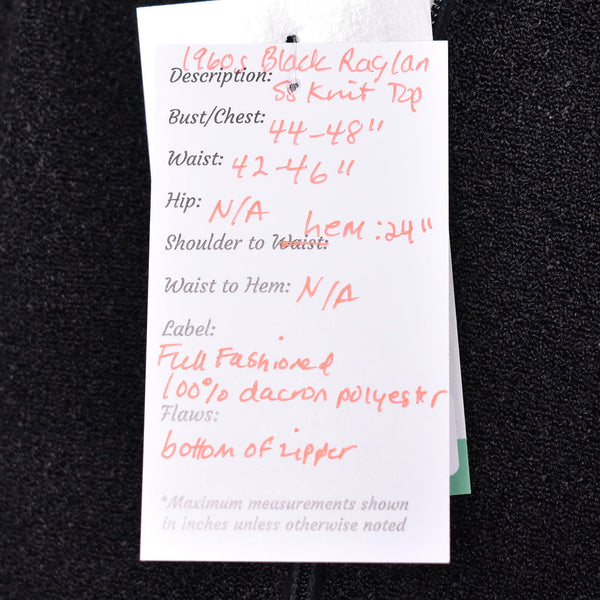 1960s Black Raglan
Description: Ss Knit Top
Bust/Chest: 44-48"
Waist: 42-46"
Hip: N/A
Shoulder to Waist: hem: 24"
Waist to Hem: N/A
Label:
Full Fashioned
100% dacron polyester
Flaws:
bottom of zipper
*Maximum measurements shown
in inches unless otherwise noted